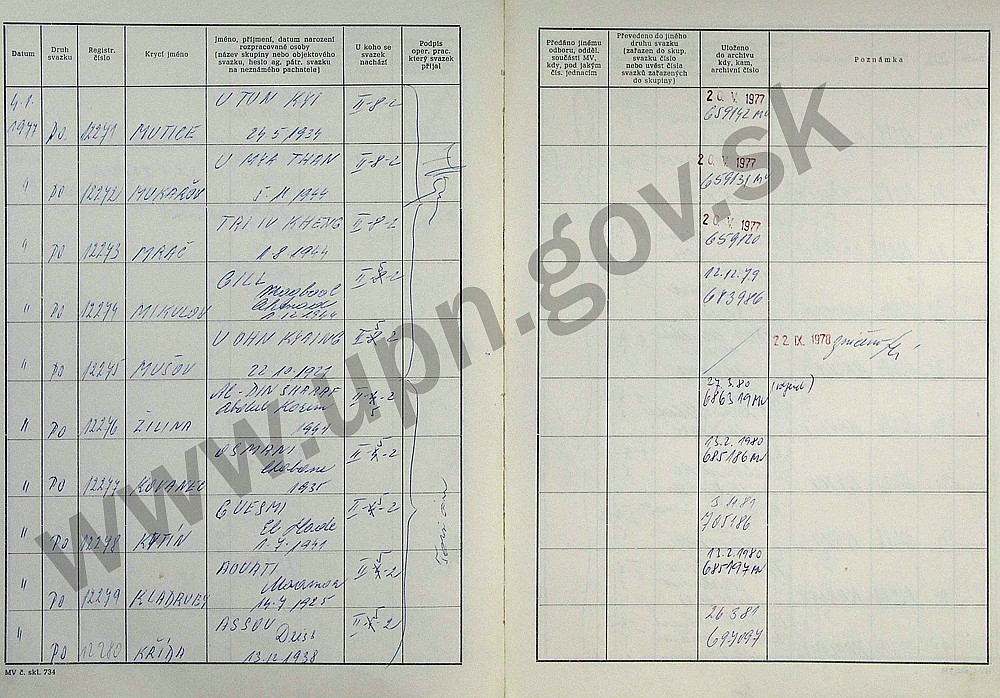 Datum
Druh svazku
Registr. číslo
Krycí jméno
Jméno, příjmení, datum narození rozpracované osoby (název skupiny nebo objektového svazku, heslo ag. pátr. svazku na neznámého pachatele)
U koho se svazek nachází
Podpis oper. prac. který svazek přijal
Předáno jinému odboru, odděl. součásti MV, kdy, pod jakým čís. jednacím
Převedeno do jiného druhu svazku (zařazen do skup. svazku číslo nebo uvést čísla svazků zařazených do skupiny)
Uloženo do archivu kdy, kam, archivní číslo
Poznámka
4.1. U TUN KYI II-8-2 20. V. 1977
1977 PO 12271 MUTICE 24 5 1934 659142 MV
U MYA THAN II-8-2 20. V. 1977
" PO 12272 MUKAŘOV 5 11 1944 659131 MV
TAI IU KHENG II-8-2 20. V. 1977
" PO 12273 MRAČ 1 8 1944 659120
GILL II-5-2 12.12.79
" PO 12274 MIKULOV 1944 683986
U OHN KYAING II-5-2 22. IX. 1978 zničeno
" PO 12275 MUŠOV 22 10 1921
AL-DIN SHARAF II-5-2 27.3.80
Abdul Karim 686319 MV
" PO 12276 ŽILINA 1941
OSMANI II-5-2 13.2.1980
Chabane 685186 MV
" PO 12277 KOVANEC 1935
GUESMI II-5-2 3 11 81
El Hade 705186
" PO 12278 KRTÍN 1.7.1941
AOUATI II-5-2 13.2.1980
685197 MV
" PO 12279 KLADRUBY 14.7 1925
ASSOU II-5-2 26 3 81
" Driss 697097
PO 12280 KŘÍDA 13.12.1938
MV č. skl. 734
www.upn.gov.sk